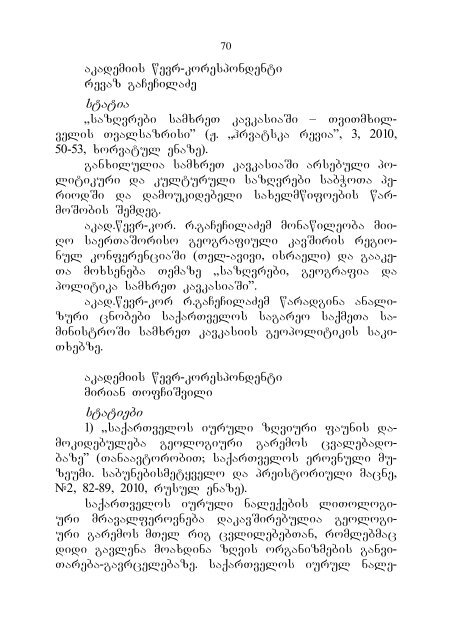 70
აკადემიის წევრ-კორესპონდენტი
რევაზ გაჩეჩილაძე
სტატია
„საზღვრები სამხრეთ კავკასიაში – თვითმხილ-
ველის თვალსაზრისი” (ჟ. „ჰრვატსკა რევია”, 3, 2010,
50-53, ხორვატულ ენაზე).
განხილულია სამხრეთ კავკასიაში არსებული პო-
ლიტიკური და კულტურული საზღვრები საბჭოთა პე-
რიოდში და დამოუკიდებელი სახელმწიფოების წარ-
მოშობის შემდეგ.
აკად.წევრ-კორ. რ.გაჩეჩილაძემ მონაწილეობა მიი-
ღო საერთაშორისო გეოგრაფიული კავშირის რეგიო-
ნულ კონფერენციაში (თელ-ავივი, ისრაელი) და გააკე-
თა მოხსენება თემაზე „საზღვრები, გეოგრაფია და
პოლიტიკა სამხრეთ კავკასიაში”.
აკად.წევრ-კორ რ.გაჩეჩილაძემ წარადგინა ანალი-
ზური ცნობები საქართველოს საგარეო საქმეთა სა-
მინისტროში სამხრეთ კავკასიის გეოპოლიტიკის საკი-
თხებზე.
აკადემიის წევრ-კორესპონდენტი
მირიან თოფჩიშვილი
სტატიები
1) „საქართველოს იურული ზღვიური ფაუნის და-
მოკიდებულება გეოლოგიური გარემოს ცვალებადო-
ბაზე” (თანაავტორობით; საქართველოს ეროვნული მუ-
ზეუმი. საბუნებისმეტყველო და პრეისტორიული მაცნე,
№2, 82-89, 2010, რუსულ ენაზე).
საქართველოს იურული ნალექების ლითოლოგი-
ური მრავალფეროვნება დაკავშირებულია გეოლოგი-
ური გარემოს მთელ რიგ ცვლილებებთან, რომლებმაც
დიდი გავლენა მოახდინა ზღვის ორგანიზმების განვი-
თარება-გავრცელებაზე. საქართველოს იურულ ნალე-